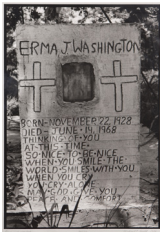 ERMA J. WASHINGTON
BORN - NOVEMBER 22, 1928
DIED - JUNE 14, 1968
THINKING OF YOU
AT THIS TIME
SO NICE TO BE NICE
WHEN YOU SMILE THE
WORLD SMILES WITH YOU
WHEN YOU CRY
YOU CRY ALONE
MAY GOD GIVE YOU
PEACE AND COMFORT